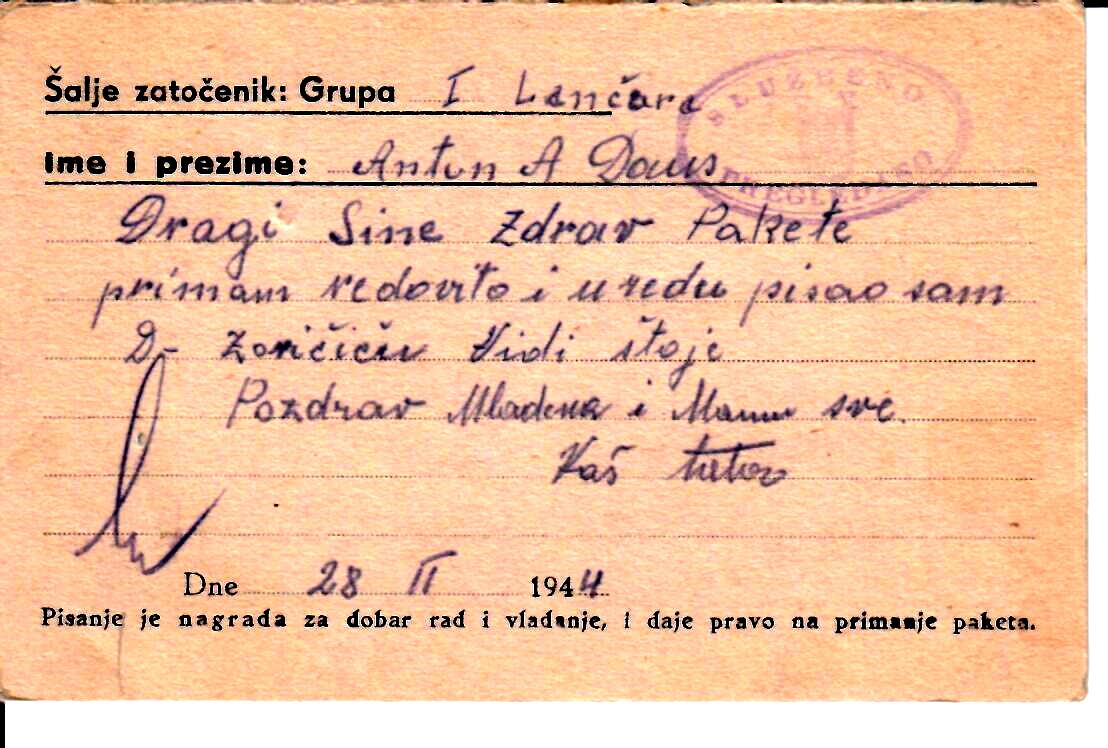 Šalje zatočenik: Grupa I Lančara
SLUŽBENO
PREGLEDANO
Ime i prezime: Anton A Daus
Dragi Sine Zdrav Pakete
primam redovito i uredu pisao sam
D- Zoričiću Vidi štoje
Pozdrav Mladena i Mamu sve.
Vaš tata
Dne 28 II 1944
Pisanje je nagrada za dobar rad i vladanje, i daje pravo na primanje paketa.